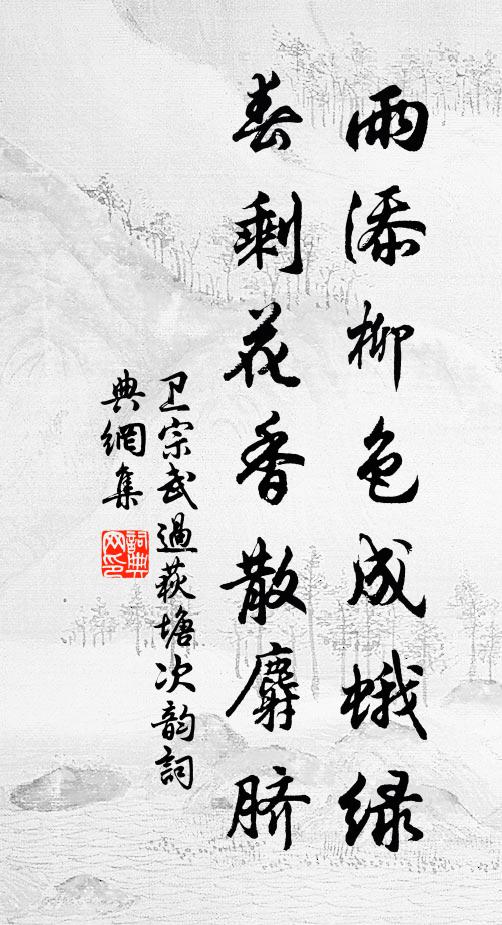 雨添柳色成蛾绿
春剩花香散麝脐
卫宗武過荻塘次韵詞
典網集
詞典网印